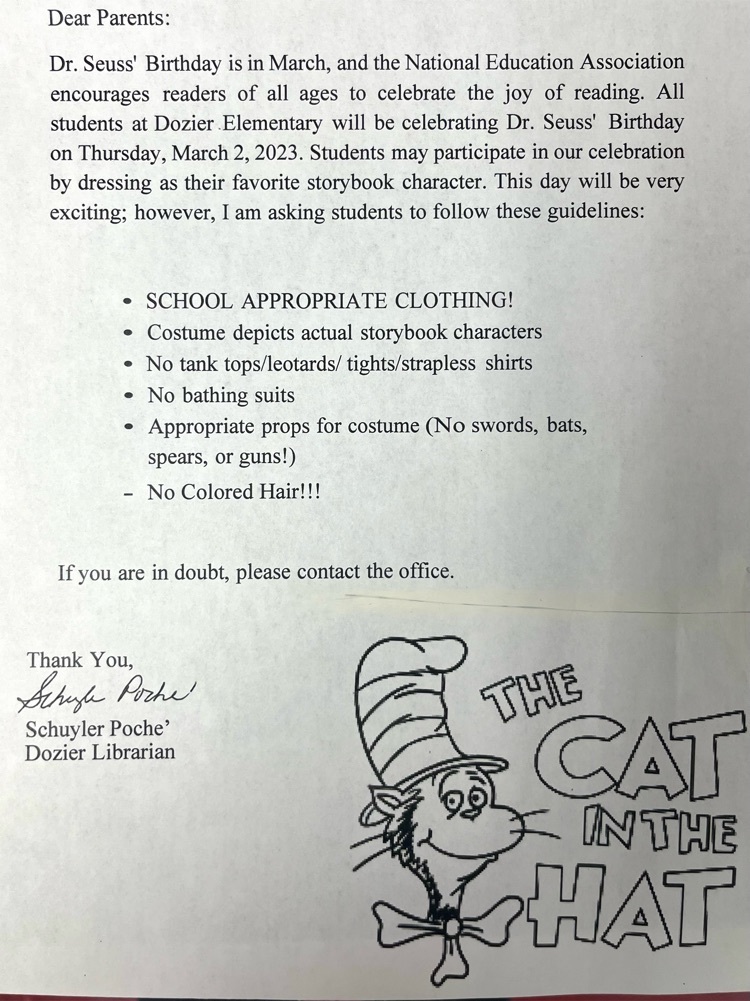 Dear Parents:
Dr. Seuss' Birthday is in March, and the National Education Association
encourages readers of all ages to celebrate the joy of reading. All
students at Dozier Elementary will be celebrating Dr. Seuss' Birthday
on Thursday, March 2, 2023. Students may participate in our celebration
by dressing as their favorite storybook character. This day will be very
exciting; however, I am asking students to follow these guidelines:
• SCHOOL APPROPRIATE CLOTHING!
• Costume depicts actual storybook characters
• No tank tops/leotards/ tights/strapless shirts
• No bathing suits
• Appropriate props for costume (No swords, bats,
spears, or guns!)
– No Colored Hair!!!
If you are in doubt, please contact the office.
Thank You,
Schuyler Poche'
Schuyler Poche’
Dozier Librarian
THE
CAT
IN THE
HAT